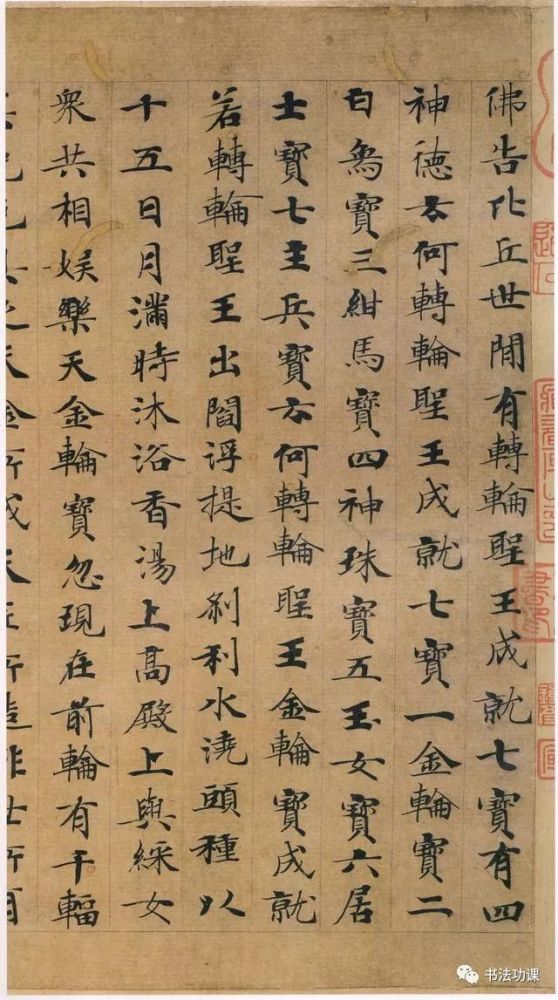 佛告比丘世間有轉輪聖王成就七寶有四
神德云何轉輪聖王成就七寶一金輪寶二
白象寶三紺馬寶四神珠寶五玉女寶六居
士寶七主兵寶云何轉輪聖王金輪寶成就
若轉輪聖王出閻浮提地剎利水澆頭種以
十五日月滿時沐浴香湯上高殿上與綵女
眾共相娛樂天金輪寶忽現在前輪有千輻
具足天金所成天匠所造非世所有
书法功课